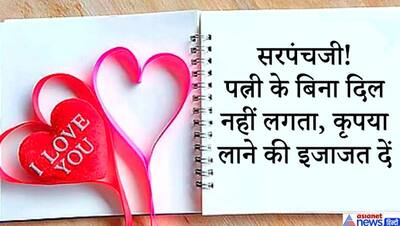 I LOVE
YOU
सरपंचजी!
पत्नी के बिना दिल
नहीं लगता, कृपया
लाने की इजाजत दें
asianet
news हिन्दी